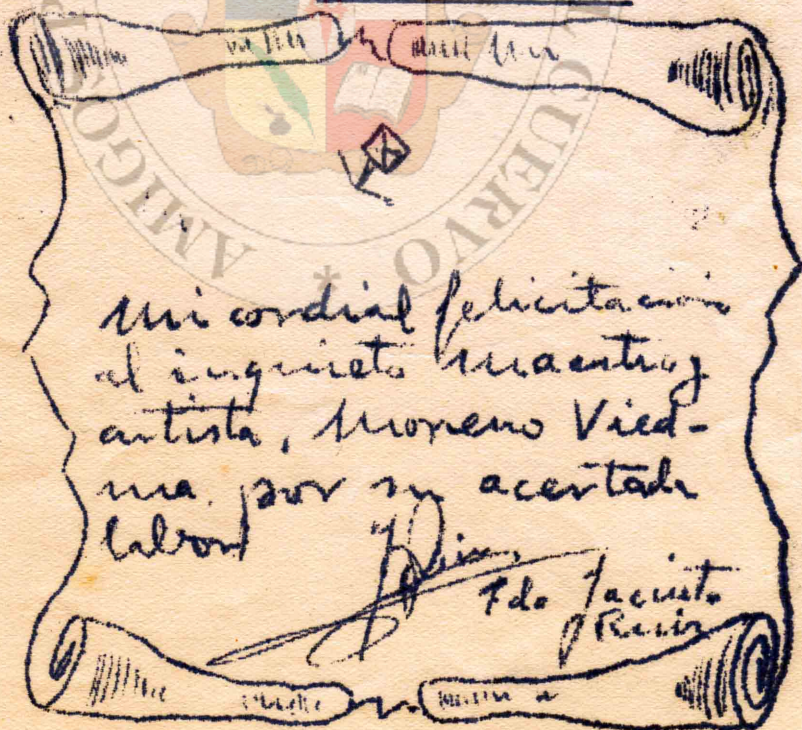 AMIGOS
CUERVO
Mi cordial felicitación
al inquieto maestro y
artista, Moreno Vied-
ma por su acertada
labor
Fdo Jacinto
Ruiz